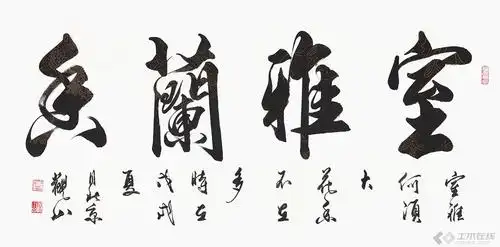 室雅蘭香
室雅
何須
大
花香
不在
多
時在
戊戌
夏
月北京
土木在线